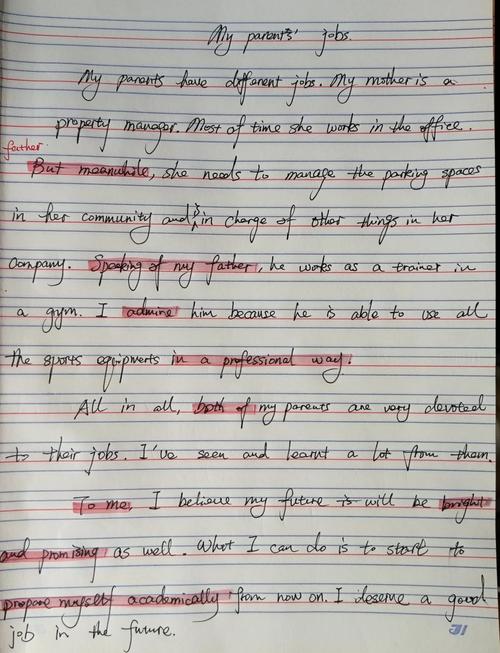 My parents' jobs.
My parents have different jobs. My mother is a
property manager. Most of time she works in the office.
father
But meanwhile, she needs to manage the parking spaces
in her community and is in charge of other things in her
company. Speaking of my father, he works as a trainer in
a gym. I admire him because he is able to use all
the sports equipments in a professional way.
All in all, both of my parents are very devoted
to their jobs. I've seen and learnt a lot from them.
To me, I believe my future is will be bright
and promising as well. What I can do is to start to
prepare myself academically from now on. I deserve a good
job in the future.